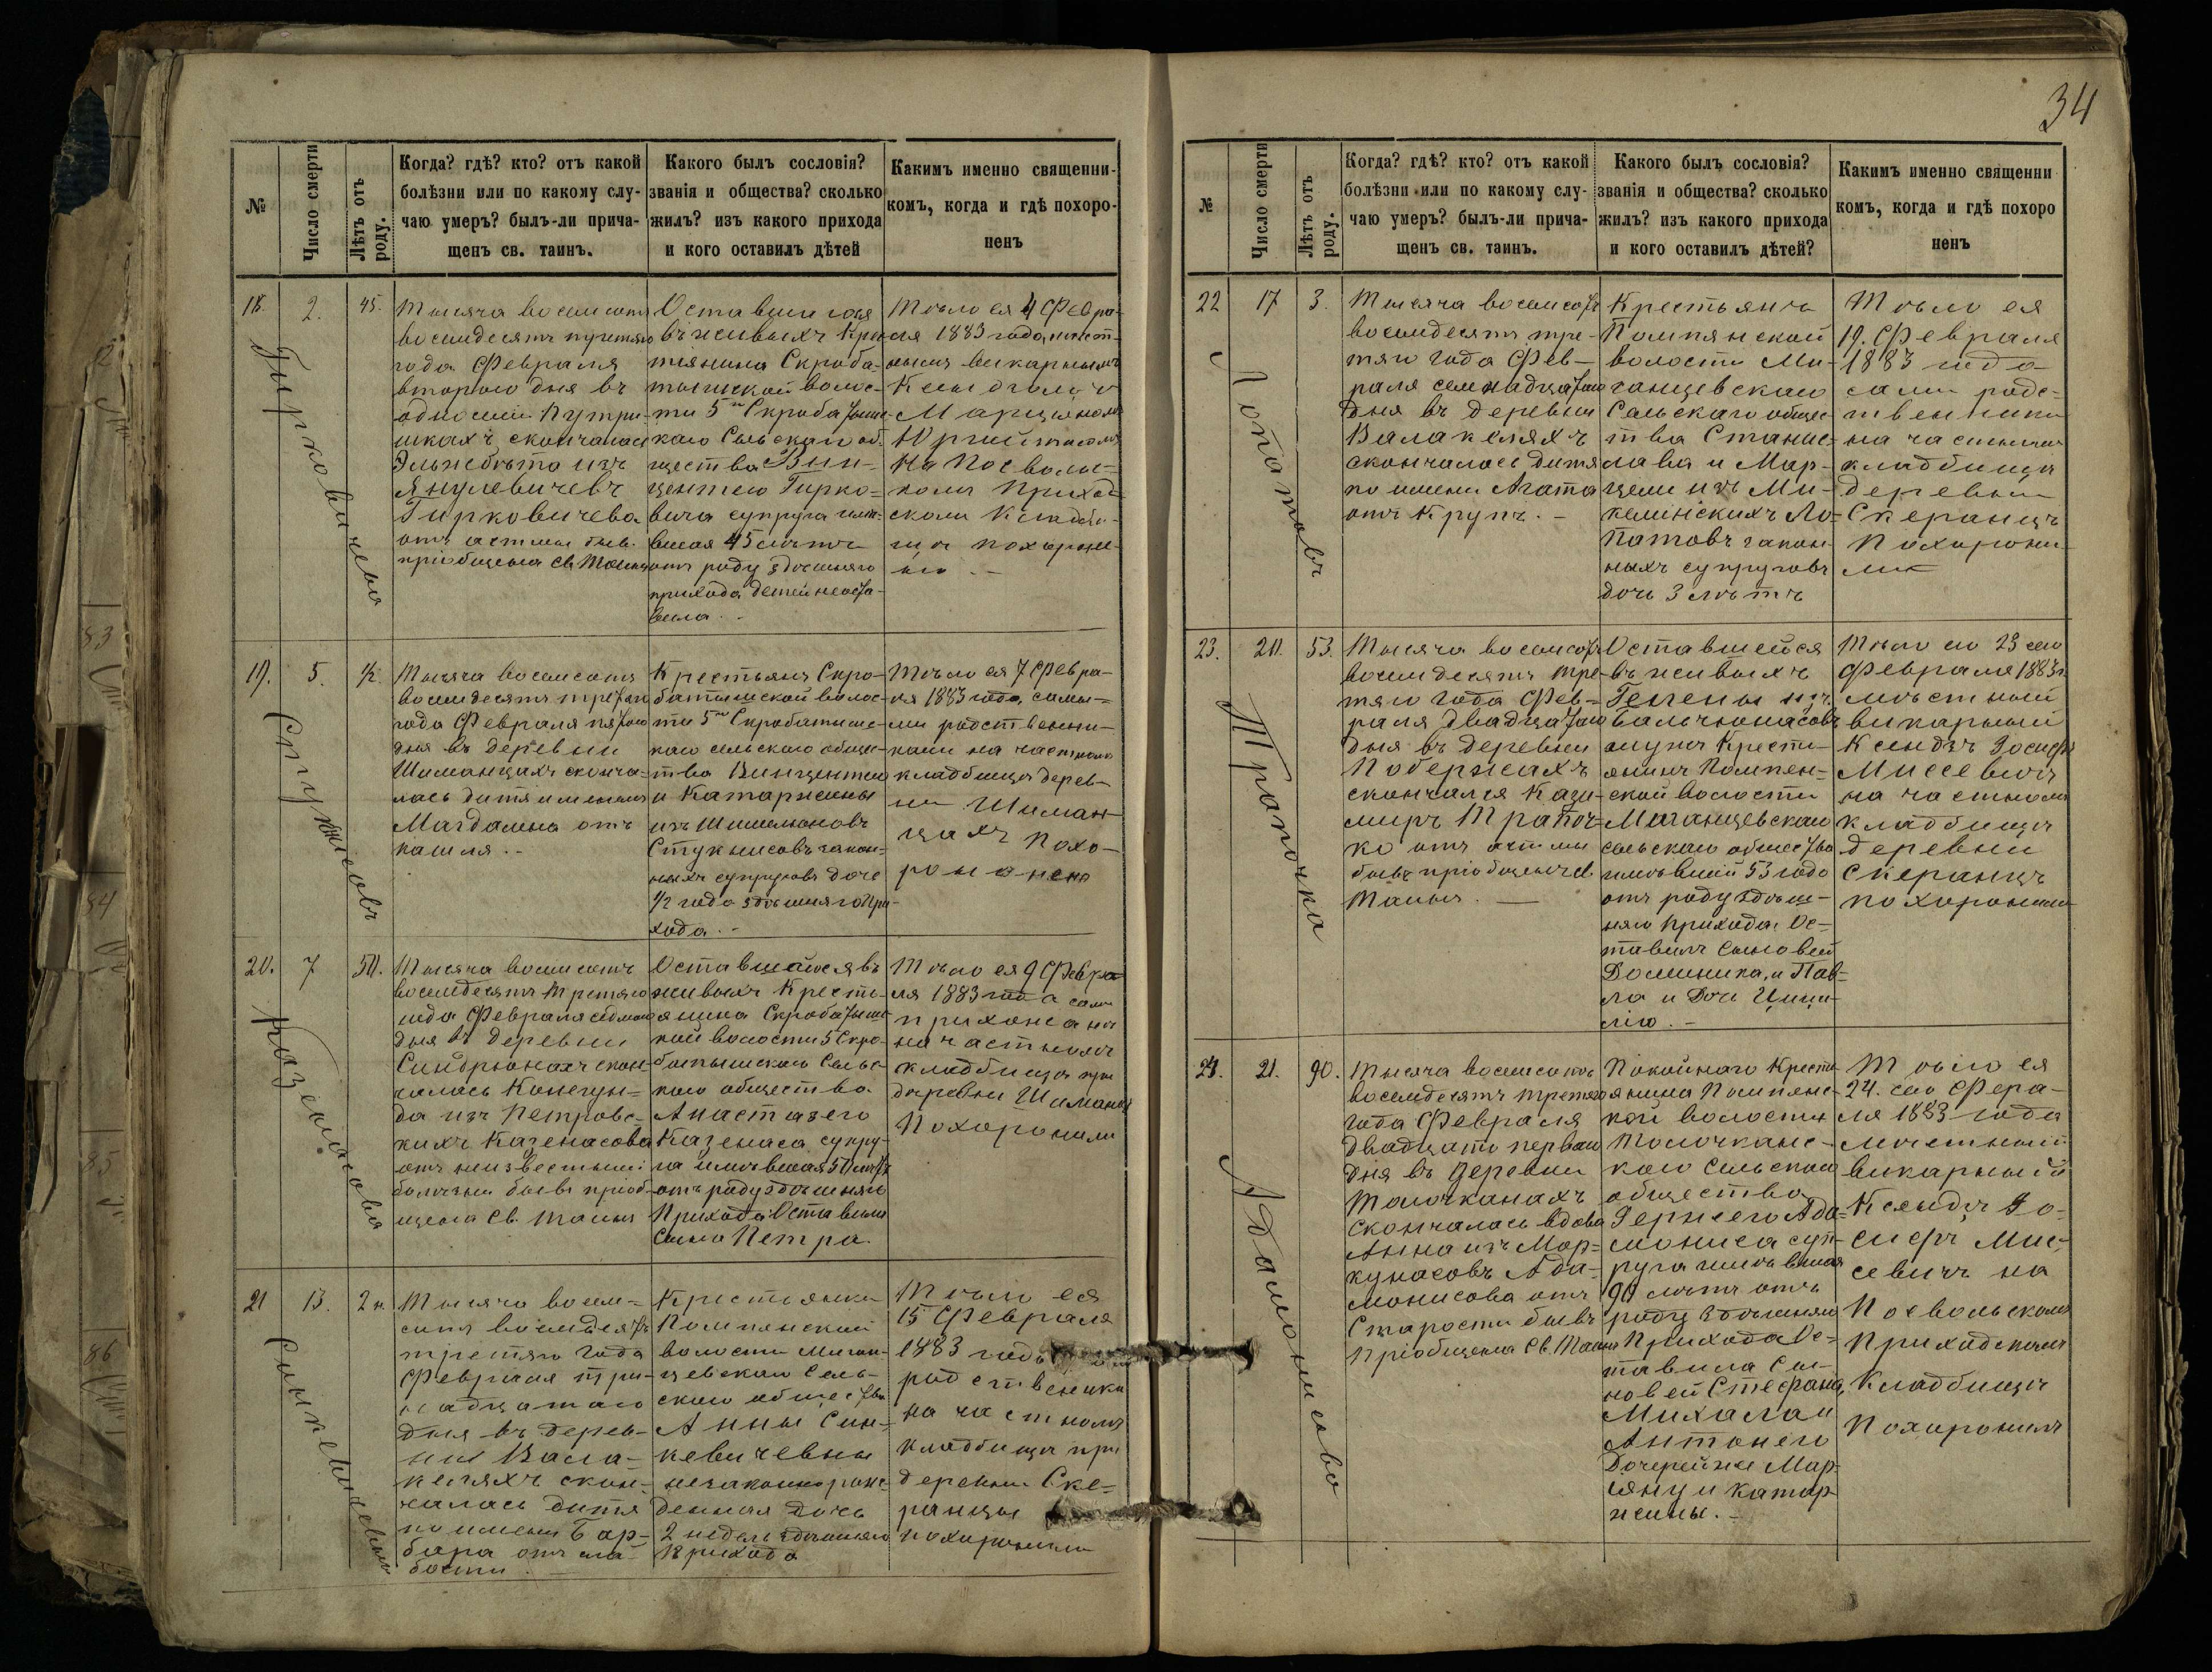 34
№
Число смерти
Лѣтъ отъ роду.
Когда? гдѣ? кто? отъ какой
болѣзни или по какому слу-
чаю умеръ? былъ-ли прича-
щенъ св. таинъ.
Какого былъ сословія?
званія и общества? сколько
жилъ? изъ какого прихода
и кого оставилъ дѣтей
Какимъ именно священни-
комъ, когда и гдѣ похоро-
ненъ
18.
2.
45.
Гирковичева
Тысяча восемсотъ
восемдесятъ третяго
года Февраля
второго дня въ
околицы
скончалась
Эльжбѣта изъ
Янулевичевъ
Гирковичева
отъ астмы быв.
пріобщена Св. Таинъ
Оставшигося
въ живыхъ Крес
тянина Скроба-
тышской волос-
ти 5го Скробатышс-
каго Сельскаго об-
щества Вин-
центего Гирко-
вича супруга имѣ-
вшая 45 лѣтъ
отъ роду здѣшняго
прихода детей неоста-
вила.
Тѣло ея 4 Февра-
ля 1883 года мѣст-
нымъ викарнымъ
Ксендзомъ
Марціяномъ
на Посволь-
комъ приход-
скомъ кладби-
щѣ похороне-
но.
19.
5.
1/2
Стукенисовъ
Тысяча восемсотъ
восемдесятъ третяго
года Февраля пятого
дня въ деревни
Шиманцахъ сконча-
лась дитя именемъ
Магдалена отъ
кашля.
Крестьянъ Скро-
батышской волос-
ти 5го Скробатышс-
каго сельскаго общес-
тва Винцентего
и Катаржины
изъ Шимелюновъ
Стукнисовъ закон-
ныхъ супруговъ доче
1/2 года здѣшняго При-
хода.
Тѣло ея 7 Февра-
ля 1883 года, сами-
ми родственни-
ками на частномъ
кладбищѣ дерев-
ни Шиман-
цахъ похо-
ронено
20.
7
50.
Казенасова
Тысяча восемсотъ
восемдесятъ третяго
года Февраля седмаго
дня въ деревни
Синдрюнахъ скон-
чалась Конегун-
да изъ Петровс-
кихъ Казенасова
отъ неизвестный
болезни бывъ пріоб-
щена Св. Таинъ
Оставшагося въ
живыхъ Кресть-
янина Скробатышс-
кой волости 5 Скро-
батышскаго Сельс-
каго общества
Анастазего
Казенаса супру-
га имѣвшая 50 лѣтъ
отъ роду здѣшняго
Прихода Оставила
Сына Петра.
Тѣло ея 9 Февра-
ля 1883 года сами
прихожаны
на частномъ
кладбищѣ при
деревни Шиманцы
Похоронили
21
13.
2 н.
Синкевичевны
Тысяча восем-
сотъ восемдесятъ
третяго года
Февраля три-
надцатаго
дня въ дерев-
ни Вала-
келяхъ скон-
чалась дитя
по имени Бар-
бара отъ сла-
бости.
Крестьянки
Помпянской
волости Миган-
цевскаго Сель-
скаго общества
Анны Син-
кевичевны
незаконорож-
денная дочь
2 недели здѣшняго
Прихода
Тѣло ея
15 Февраля
1883 года
родственики
на частномъ
кладбищѣ при
деревни Ске-
ранцы
похоронили
№
Число смерти
Лѣтъ отъ роду.
Когда? гдѣ? кто? отъ какой
болѣзни или по какому слу-
чаю умеръ? былъ-ли прича-
щенъ св. таинъ.
Какого былъ сословія?
званія и общества? сколько
жилъ? изъ какого прихода
и кого оставилъ дѣтей?
Какимъ именно священни
комъ, когда и гдѣ похоро
ненъ
22
17
3.
Лопатовъ
Тысяча восемсотъ
восемдесятъ тре-
тяго года Фев-
раля семнадцатого
дня въ деревни
Валакеляхъ
скончалось дитя
по имени Агата
отъ Крупъ.
Крестьянъ
Помпянской
волости Ми-
ганцевскаго
Сельскаго общес-
тва Станис-
лава и Мар-
цели изъ Ми-
келинскихъ Ло-
патовъ закон-
ныхъ супруговъ
дочь 3 лѣтъ
Тѣло ея
19. Февраля
1883 года
сами родс-
твенники
на частномъ
кладбищѣ
деревни
Скеранцъ
Похорони-
ли
23.
20.
53.
Трапочка
Тысяча восемсотъ
восемдесятъ тре-
тяго года Фев-
раля двадцатого
дня въ деревни
Побержахъ
скончался Кази-
миръ Трапоч-
ко отъ астмы
бывъ пріобщенъ св.
Таинъ.
Оставшейся
въ живыхъ
Гелены изъ
Бальчюнасовъ
мужъ Крести-
янинъ Помпен-
ской волости
Миганцевскаго
сельскаго общества
имѣвшій 53 года
отъ роду здѣш-
няго прихода Ос-
тавилъ Сыновей
Доминика, и Пав-
ла и Дочь Цици-
лію.
Тѣло его 23 сего
Февраля 1883 г.
мѣстный
викарный
Ксендзъ Іосифъ
Миссевичъ
на частномъ
кладбищѣ
деревни
Скеранцъ
похоронилъ
24.
21.
90.
Адамонисово
Тысяча восемсотъ
восемдесятъ третяго
года Февраля
двадцать перваго
дня въ деревни
Толочканахъ
Скончалась вдова
Анна изъ Мар-
кунасовъ Ада-
монисова отъ
Старости бывъ
пріобщена Св. Таинъ
Покойнаго Крести-
янина Помпянс-
кой волости
Толочканс-
каго Сельскаго
общества
Гержего Ада-
мониса суп-
руга имѣвшая
90 лѣтъ отъ
роду здѣшняго
Прихода Ос-
тавила Сы-
новей Стефана,
Михала и
Антонего
Дочерей же Мар-
цяну и Катар-
жины.
Тѣло ея
24. сего Февра-
ля 1883 года
мѣстный
викарный
Ксендзъ Іо-
сифъ Мис-
севичъ на
Посвольскомъ
Приходскомъ
Кладбищѣ
Похоронилъ